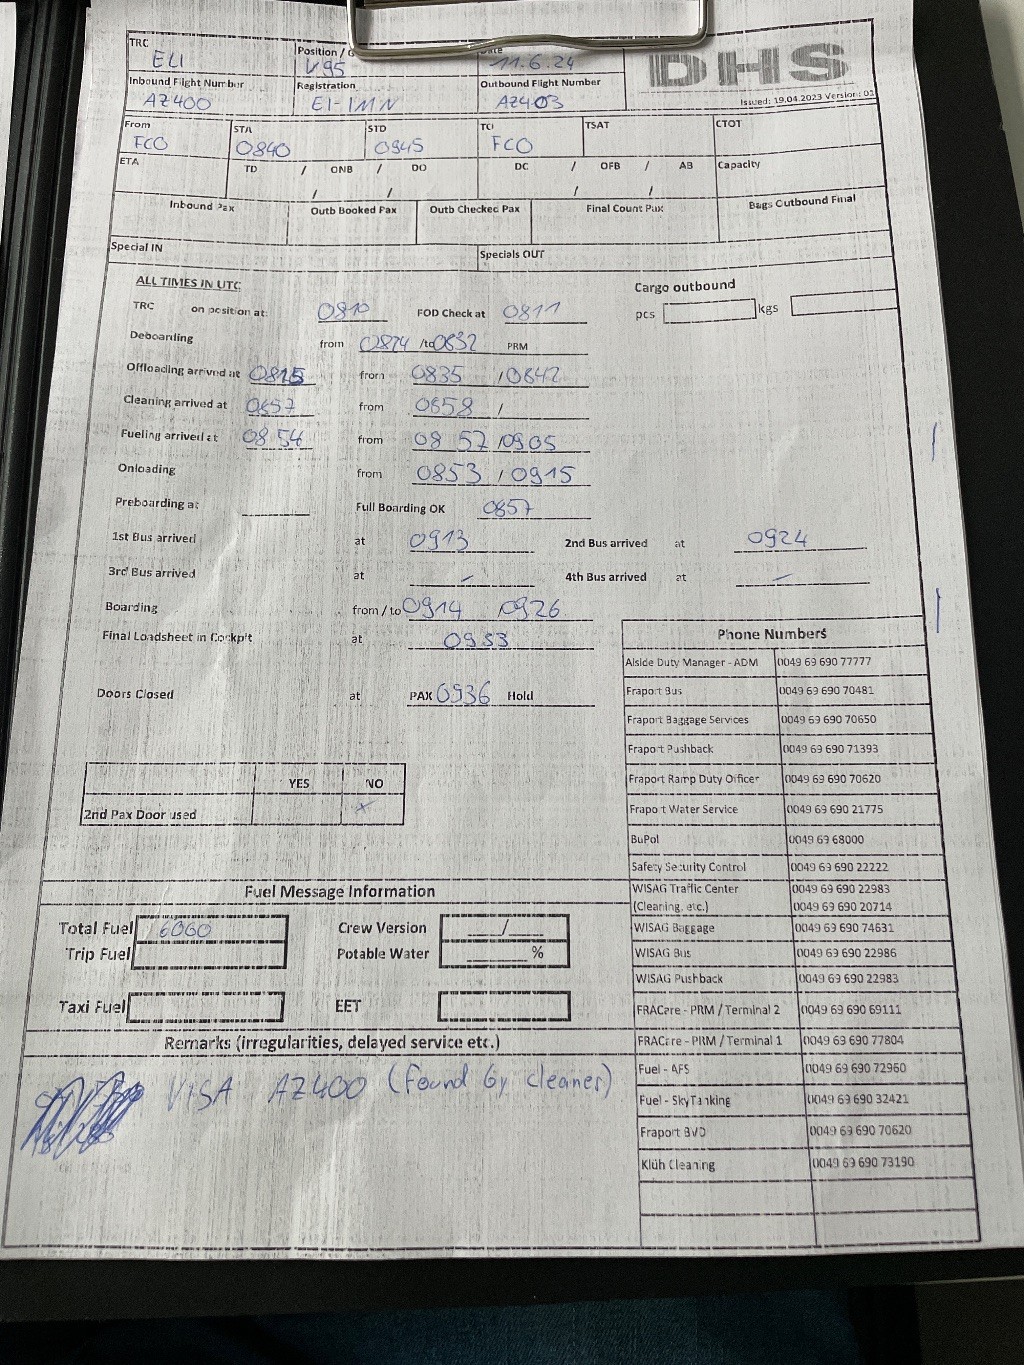 TRC Position / G Date
ELI V95 11.6.24 DHS
Inbound Flight Number Registration Outbound Flight Number
AZ400 EI-IMN AZ403 Issued: 19.04.2023 Version: 01
From STA STD TO TSAT CTOT
FCO 0840 0945 FCO
ETA TD / ONB / DO DC / OFB / AB Capacity
/ / / /
Inbound Pax Outb Booked Pax Outb Checked Pax Final Count Pax Bags Outbound Final
Special IN Specials OUT
ALL TIMES IN UTC Cargo outbound
TRC on position at: 0810 FOD Check at 0811 pcs kgs
Deboarding from /to 0832 PRM
Offloading arrived at 0815 from 0835 / 0842
Cleaning arrived at from 0858 /
Fueling arrived at 08 54 from 08 57 / 0905
Onloading from 0853 / 0915
Preboarding at Full Boarding OK 0857
1st Bus arrived at 0913 2nd Bus arrived at 0924
3rd Bus arrived at – 4th Bus arrived at –
Boarding from / to 0914 0926
Final Loadsheet in Cockpit at
Doors Closed at PAX 0936 Hold
Phone Numbers
Aiside Duty Manager - ADM 0049 69 690 77777
Fraport Bus 0049 69 690 70481
Fraport Baggage Services 0049 69 690 70650
Fraport Pushback 0049 69 690 71393
Fraport Ramp Duty Officer 0049 69 690 70620
Fraport Water Service 0049 69 690 21775
BuPol 0049 69 68000
Safety Security Control 0049 69 690 22222
WISAG Traffic Center 0049 69 690 22983
(Cleaning, etc.) 0049 69 690 20714
WISAG Baggage 0049 69 690 74631
WISAG Bus 0049 69 690 22986
WISAG Pushback 0049 69 690 22983
FRACare - PRM / Terminal 2 0049 69 690 69111
FRACare - PRM / Terminal 1 0049 69 690 77804
Fuel - AFS 0049 69 690 72960
Fuel - SkyTanking 0049 69 690 32421
Fraport BVD 0049 69 690 70620
Klüh Cleaning 0049 69 690 73190
YES NO
2nd Pax Door used x
Fuel Message Information
Total Fuel 6060 Crew Version /
Trip Fuel Potable Water %
Taxi Fuel EET
Remarks (irregularities, delayed service etc.)
VISA AZ400 (found by cleaner)